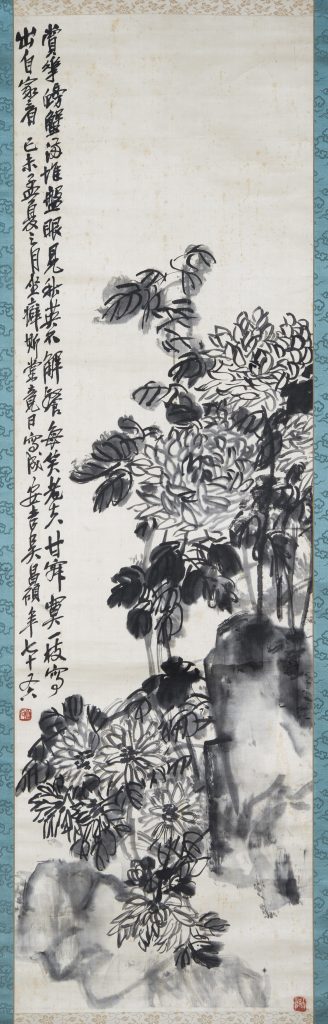 賞華時蟹滿堆盤眼見秋英不解餐每笑老夫甘寂寞一枝寫
出自家看 己未孟夏之月坐癖斯堂竟日寫成安吉吳昌碩年七十又六